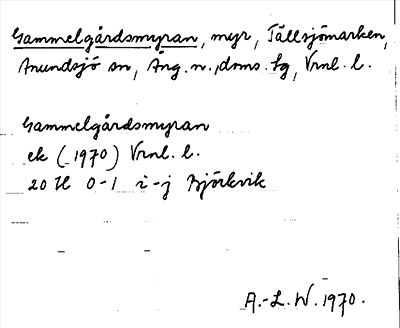 Gammelgårdsmyran, myr, Tällsjömarken,
Anundsjö sn, Ång. n., doms. hg, Vrnl. l.
Gammelgårdsmyran
ek (1970) Vrnl. l.
20 H 0-1 i-j Björkvik
A.-L. W. 1970.